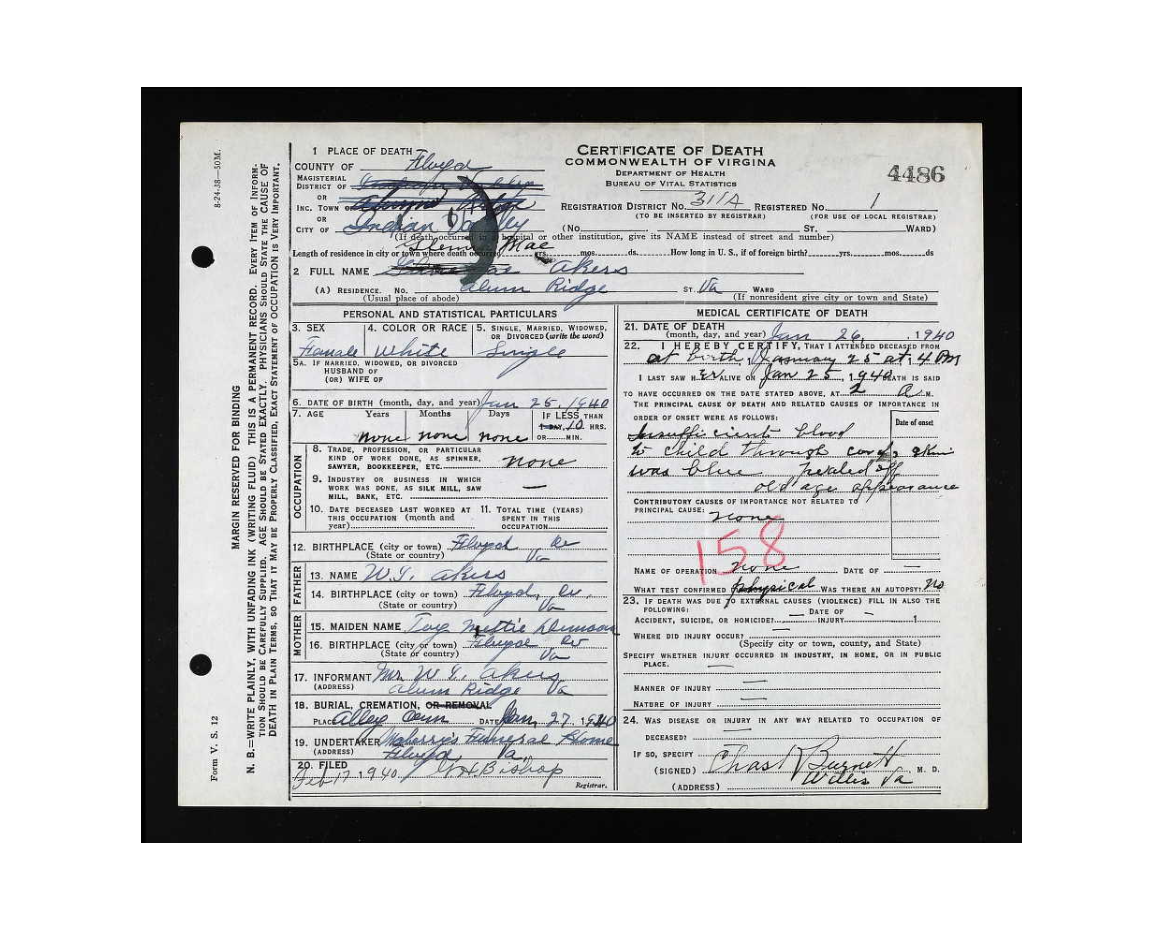 CERTIFICATE OF DEATH
COMMONWEALTH OF VIRGINIA
DEPARTMENT OF HEALTH
BUREAU OF VITAL STATISTICS
4486
1 PLACE OF DEATH
COUNTY OF Floyd
MAGISTERIAL DISTRICT OF
OR
INC. TOWN OF
OR
CITY OF Indian Valley
REGISTRATION DISTRICT NO. 311A REGISTERED NO. 1
(TO BE INSERTED BY REGISTRAR) (FOR USE OF LOCAL REGISTRAR)
(No. St. WARD)
(If death occurred in a hospital or other institution, give its NAME instead of street and number)
Length of residence in city or town where death occurred yrs. mos. ds. How long in U. S., if of foreign birth? yrs. mos. ds
2 FULL NAME Mae Akers
(A) RESIDENCE. No. Alum Ridge ST. Va WARD
(Usual place of abode) (If nonresident give city or town and State)
PERSONAL AND STATISTICAL PARTICULARS
3. SEX Female
4. COLOR OR RACE White
5. SINGLE, MARRIED, WIDOWED, OR DIVORCED (write the word) Single
5A. IF MARRIED, WIDOWED, OR DIVORCED
HUSBAND OF
(OR) WIFE OF
6. DATE OF BIRTH (month, day, and year) Jan 25, 1940
7. AGE Years Months Days IF LESS THAN
1 DAY, 10 HRS.
none none none OR MIN.
OCCUPATION
8. TRADE, PROFESSION, OR PARTICULAR
KIND OF WORK DONE, AS SPINNER,
SAWYER, BOOKKEEPER, ETC. none
9. INDUSTRY OR BUSINESS IN WHICH
WORK WAS DONE, AS SILK MILL, SAW
MILL, BANK, ETC. —
10. DATE DECEASED LAST WORKED AT
THIS OCCUPATION (month and
year)
11. TOTAL TIME (YEARS)
SPENT IN THIS
OCCUPATION
12. BIRTHPLACE (city or town) Floyd Co
(State or country) Va
FATHER
13. NAME W.Y. Akers
14. BIRTHPLACE (city or town) Floyd, Co.
(State or country) Va
MOTHER
15. MAIDEN NAME
16. BIRTHPLACE (city or town) Floyd Co
(State or country) Va
17. INFORMANT Mr. W Y. Akers
(ADDRESS) Alum Ridge Va
18. BURIAL, CREMATION, OR REMOVAL
PLACE Cem DATE Jan, 27, 1940
19. UNDERTAKER Funeral Home
(ADDRESS) Floyd, Va.
20. FILED Feb 17 1940 Bishop
Registrar.
MEDICAL CERTIFICATE OF DEATH
21. DATE OF DEATH
(month, day, and year) Jan 26, 1940
22. I HEREBY CERTIFY, THAT I ATTENDED DECEASED FROM
at birth, January 25 at 4 PM
I LAST SAW HER ALIVE ON Jan 25, 1940 DEATH IS SAID
TO HAVE OCCURRED ON THE DATE STATED ABOVE, AT 2 A M.
THE PRINCIPAL CAUSE OF DEATH AND RELATED CAUSES OF IMPORTANCE IN
ORDER OF ONSET WERE AS FOLLOWS:
Date of onset
Insufficient blood
to child through cord, skin
was blue pealed off
old age appearance
CONTRIBUTORY CAUSES OF IMPORTANCE NOT RELATED TO
PRINCIPAL CAUSE: none
158
NAME OF OPERATION none DATE OF —
WHAT TEST CONFIRMED physical WAS THERE AN AUTOPSY? No
23. IF DEATH WAS DUE TO EXTERNAL CAUSES (VIOLENCE) FILL IN ALSO THE
FOLLOWING:
ACCIDENT, SUICIDE, OR HOMICIDE? — DATE OF INJURY — 1
WHERE DID INJURY OCCUR? —
(Specify city or town, county, and State)
SPECIFY WHETHER INJURY OCCURRED IN INDUSTRY, IN HOME, OR IN PUBLIC
PLACE. —
MANNER OF INJURY —
NATURE OF INJURY —
24. WAS DISEASE OR INJURY IN ANY WAY RELATED TO OCCUPATION OF
DECEASED? —
IF SO, SPECIFY
(SIGNED) Chas R Burnett M. D.
(ADDRESS) Willis Va
8-24-38—50M.
MARGIN RESERVED FOR BINDING
N. B.—WRITE PLAINLY, WITH UNFADING INK (WRITING FLUID) THIS IS A PERMANENT RECORD. EVERY ITEM OF INFORM-
TION SHOULD BE CAREFULLY SUPPLIED. AGE SHOULD BE STATED EXACTLY. PHYSICIANS SHOULD STATE THE CAUSE OF
DEATH IN PLAIN TERMS, SO THAT IT MAY BE PROPERLY CLASSIFIED. EXACT STATEMENT OF OCCUPATION IS VERY IMPORTANT.
Form V. S. 12